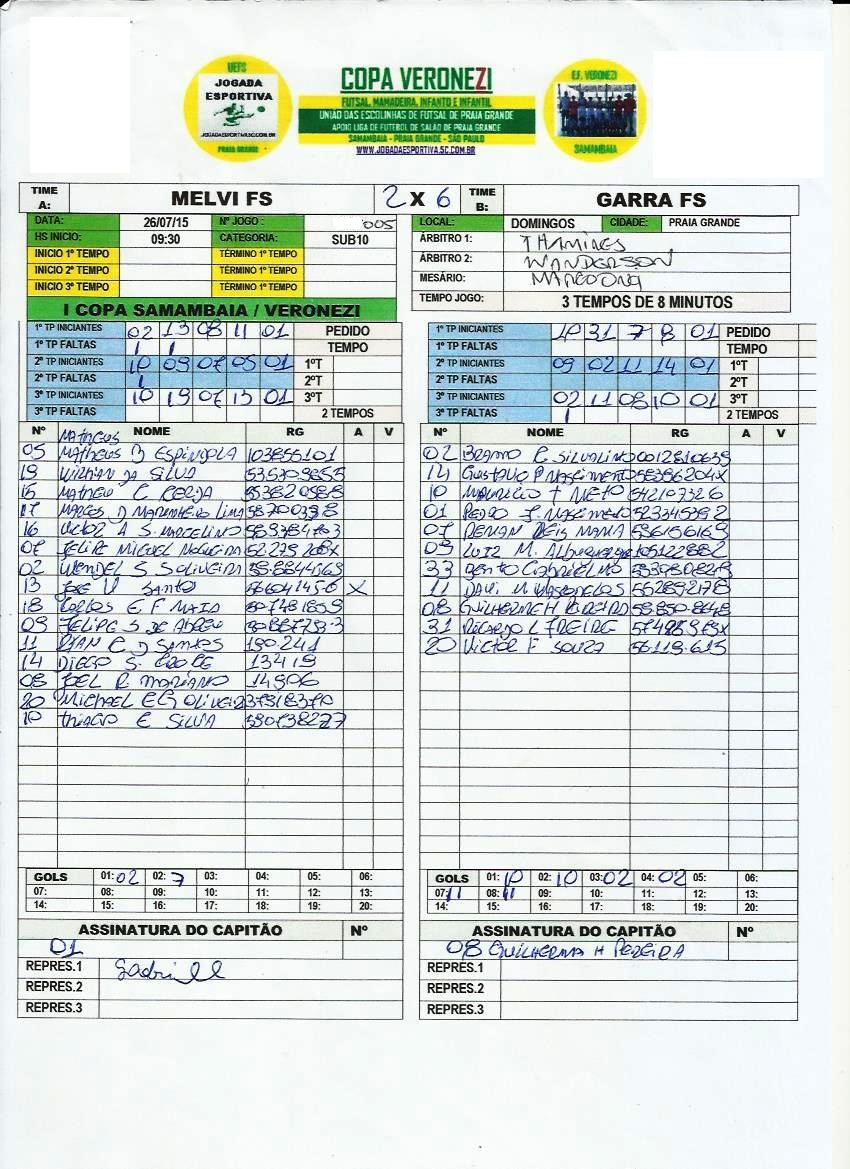 UEFS
JOGADA
ESPORTIVA
JOGADAESPORTIVA.SC.COM.BR
PRAIA GRANDE
COPA VERONEZI
FUTSAL, MAMADEIRA, INFANTO E INFANTIL
UNIÃO DAS ESCOLINHAS DE FUTSAL DE PRAIA GRANDE
APOIO LIGA DE FUTEBOL DE SALÃO DE PRAIA GRANDE
SAMAMBAIA - PRAIA GRANDE - SÃO PAULO
WWW.JOGADAESPORTIVA.SC.COM.BR
E.F. VERONEZI
SAMAMBAIA
TIME A: MELVI FS 2 X 6 TIME B: GARRA FS
DATA: 26/07/15 Nº JOGO : 005
HS INICIO: 09:30 CATEGORIA: SUB10
INICIO 1º TEMPO TÉRMINO 1º TEMPO
INICIO 2º TEMPO TÉRMINO 1º TEMPO
INICIO 3º TEMPO TÉRMINO 1º TEMPO
LOCAL: DOMINGOS CIDADE: PRAIA GRANDE
ÁRBITRO 1: THAMIRES
ÁRBITRO 2: WANDERSON
MESÁRIO:
TEMPO JOGO: 3 TEMPOS DE 8 MINUTOS
I COPA SAMAMBAIA / VERONEZI
1º TP INICIANTES 02 13 08 11 01 PEDIDO
1º TP FALTAS I I TEMPO
2º TP INICIANTES 10 09 07 05 01 1ºT
2º TP FALTAS I
3º TP INICIANTES 10 19 07 13 01 3ºT
3º TP FALTAS 2 TEMPOS
1º TP INICIANTES 10 31 7 8 01 PEDIDO
1º TP FALTAS TEMPO
2º TP INICIANTES 09 02 11 14 01 1ºT
2º TP FALTAS 2ºT
3º TP INICIANTES 02 11 08 10 01 3ºT
3º TP FALTAS I 2 TEMPOS
Nº NOME RG A V
MATHEUS
05 MATHEUS B ESPINDOLA 103855101
19 WILHIAN DA SILVA
15 MATHEU C
17 MARCOS D MARINHEIRO LIMA
16 VICTOR A S. MARCELINO
07 FELIPE MIGUEL NOGUEIRA
02 WENDEL S S OLIVEIRA
13 JOSE V SANTO X
18 CARLOS E F MAIA
09 FELIPE S DE ABREU
11 RYAN C D SANTOS 190.241
14 DIEGO S. 13419
08 JOEL R MARIANO 14906
20 MICHAEL E G OLIVEIRA
10 THIAGO E SILVA 530738277
Nº NOME RG A V
02 BRUNO R SILVALINO
14 GUSTAVO P NASCIMENTO 58396204X
10 MAURICIO T NETO 542107326
01 PEDRO J. NASCIMENTO 523345392
07 RENAN REIS MARIA
09 LUIZ M. ALBUQUERQUE
33 GABRIEL
11 DAVI M VASCONCELOS 562892178
08 GUILHERME H PEREIRA
31 RICARDO L FREIRE
20 VICTOR F SOUZA 56.119.615
GOLS 01: 02 02: 7 03: 04: 05: 06:
07: 08: 09: 10: 11: 12: 13:
14: 15: 16: 17: 18: 19: 20:
GOLS 01: 10 02: 10 03: 02 04: 02 05: 06:
07: 11 08: 11 09: 10: 11: 12: 13:
14: 15: 16: 17: 18: 19: 20:
ASSINATURA DO CAPITÃO Nº
01
REPRES.1
REPRES.2
REPRES.3
ASSINATURA DO CAPITÃO Nº
08 GUILHERMA H PEREIRA
REPRES.1
REPRES.2
REPRES.3